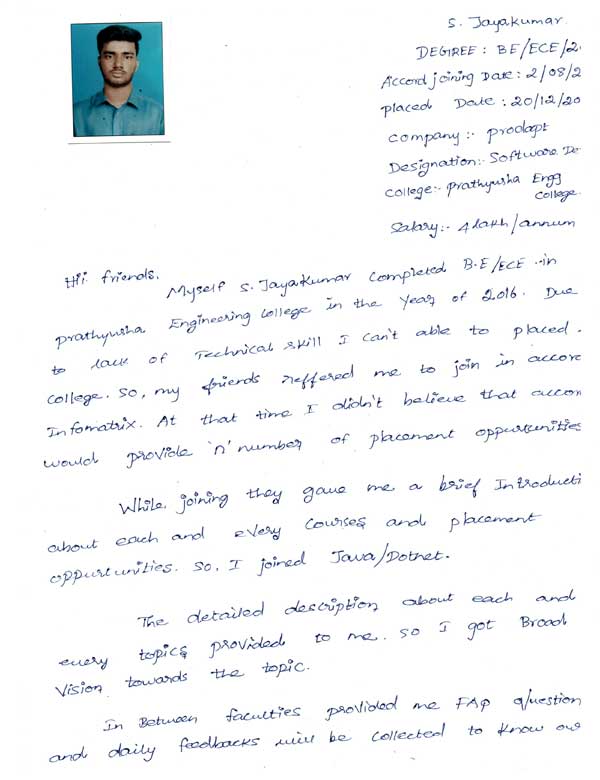 S. Jayakumar
DEGREE : BE/ECE/2
Accord joining Date : 2/08/2
placed Date : 20/12/20
company :- prodapt
Designation :- Software De
College :- prathyusha Engg
College.
Salary :- 4 lakh/annum
Hii friends.
Myself S. Jayakumar completed B.E/ECE in
prathyusha Engineering College in the year of 2016. Due
to lack of Technical skill I can't able to placed.
college. So, my friends reffered me to join in accord
Infomatrix. At that time I didn't believe that accor
would provide 'n' number of placement oppurtunities
While joining they gave me a brief Introducti
about each and every courses and placement
oppurtunities. So, I joined Java/Dotnet.
The detailed description about each and
every topics provided to me. so I got Broad
Vision towards the topic.
In Between faculties provided me FAQ question
and daily feedbacks will be collected to know our